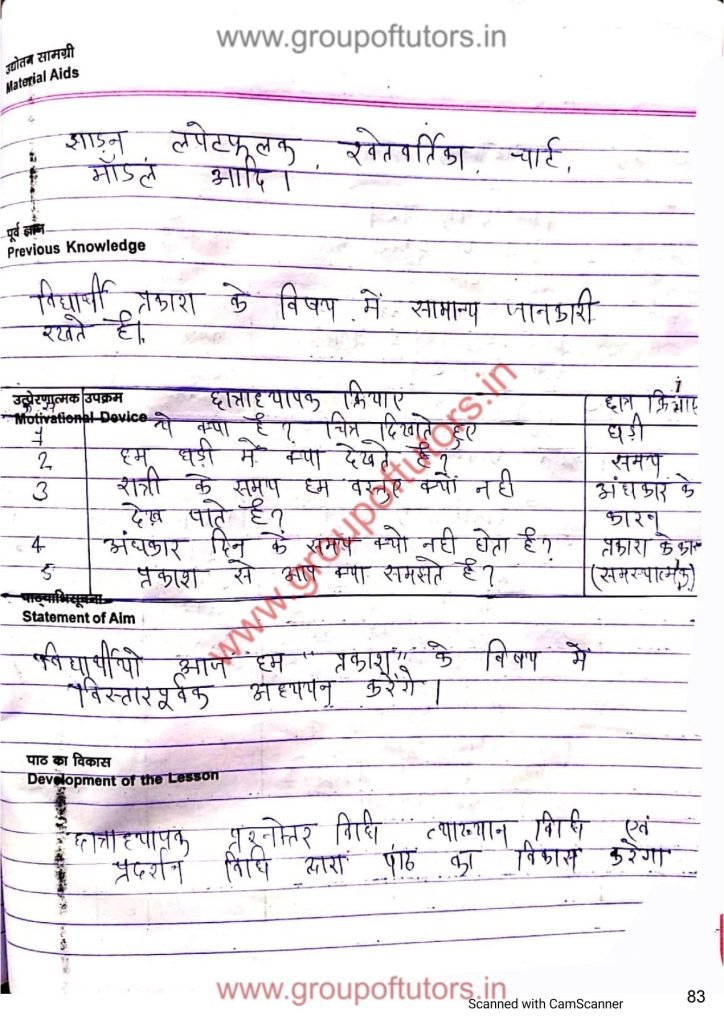 www.groupoftutors.in
उद्योतन सामग्री
Material Aids
झाडन लपेटफलक, श्वेतवर्तिका, चार्ट,
मॉडल आदि।
पूर्व ज्ञान
Previous Knowledge
विद्यार्थी प्रकाश के विषय में सामान्य जानकारी
रखते हैं।
उत्प्रेरणात्मक उपक्रम छात्राध्यापक क्रियाए छात्र क्रियाए
Motivational Device
1 ये क्या है? चित्र दिखाते हुए घड़ी
2 हम घड़ी में क्या देखते हैं? समय
3 रात्री के समय हम वस्तुए क्यों नही अंधकार के
देख पाते है? कारन
4 अंधकार दिन के समय क्यो नही होता है? प्रकाश के का
5 प्रकाश से आप क्या समझते है? (समस्यात्मक)
पाठ्याभिसूचना
Statement of Aim
विद्यार्थीयो आज हम "प्रकाश" के विषय में
विस्तारपूर्वक अध्ययन करेंगे।
पाठ का विकास
Development of the Lesson
छात्राध्यापक प्रश्नोत्तर विधि व्याख्यान विधि एवं
प्रदर्शन विधि द्वारा पाठ का विकास करेगा
www.groupoftutors.in
www.groupoftutors.in
Scanned with CamScanner
83